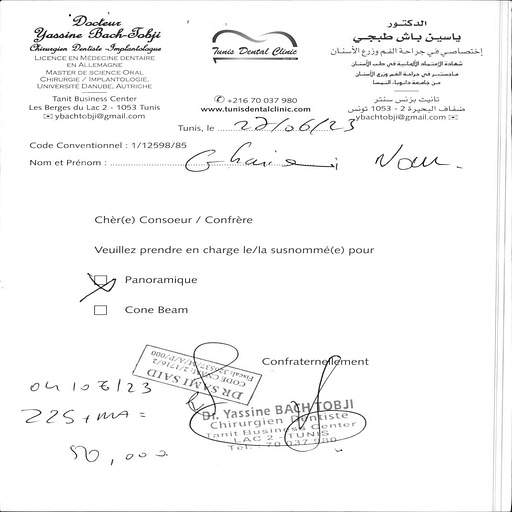 Docteur
Yassine Bach-Tobji
Chirurgien Dentiste -Implantologue
LICENCE EN MÉDECINE DENTAIRE
EN ALLEMAGNE
MASTER DE SCIENCE ORAL
CHIRURGIE / IMPLANTOLOGIE,
UNIVERSITÉ DANUBE, AUTRICHE
Tanit Business Center
Les Berges du Lac 2 - 1053 Tunis
ybachtobji@gmail.com
Tunis Dental Clinic
+216 70 037 980
www.tunisdentalclinic.com
الدكتور
ياسين باش طبجي
إختصاصي في جراحة الفم وزرع الأسنان
شهادة الاعتماد الألمانية في طب الأسنان
ماجستير في جراحة الفم وزرع الأسنان
من جامعة دانوبا، النمسا
تانيت بزنس سنتر
ضفاف البحيرة 2 - 1053 تونس
ybachtobji@gmail.com
Tunis, le 22/06/23
Code Conventionnel : 1/12598/85
Nom et Prénom :
Chèr(e) Consoeur / Confrère
Veuillez prendre en charge le/la susnommé(e) pour
Panoramique
Cone Beam
Confraternellement
DR SAMI SAID
Dr. Yassine BACH TOBJI
Chirurgien Dentiste
Tanit Business Center
LAC 2 - TUNIS
Tel.: 70 037 980